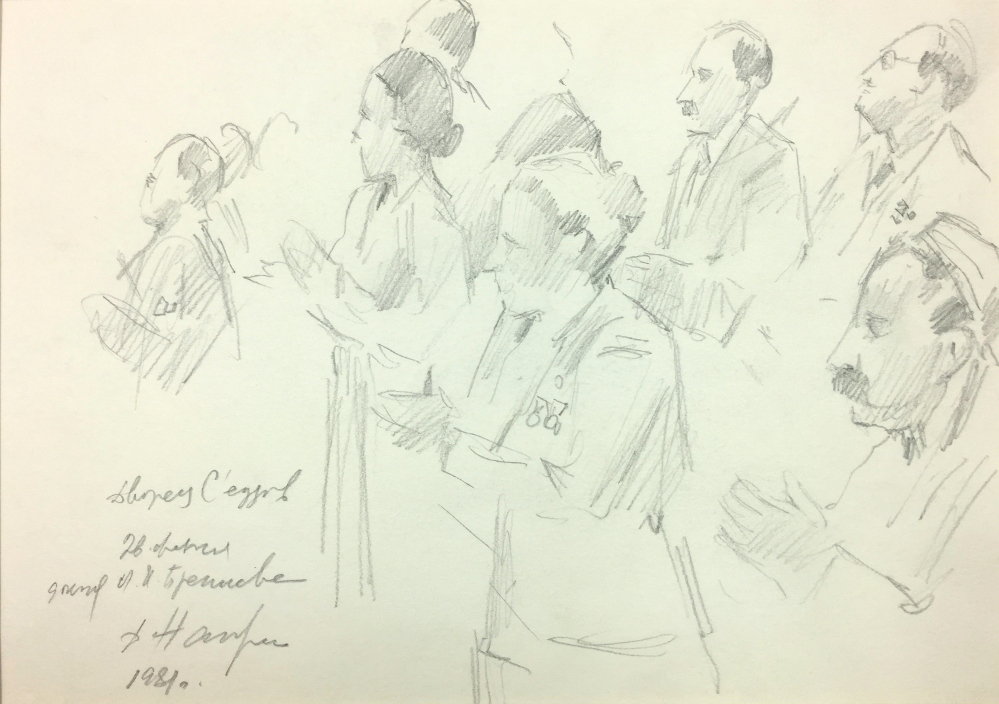 Дворец Съездов
26 февраля
доклад Л. И Брежнева
1981г.